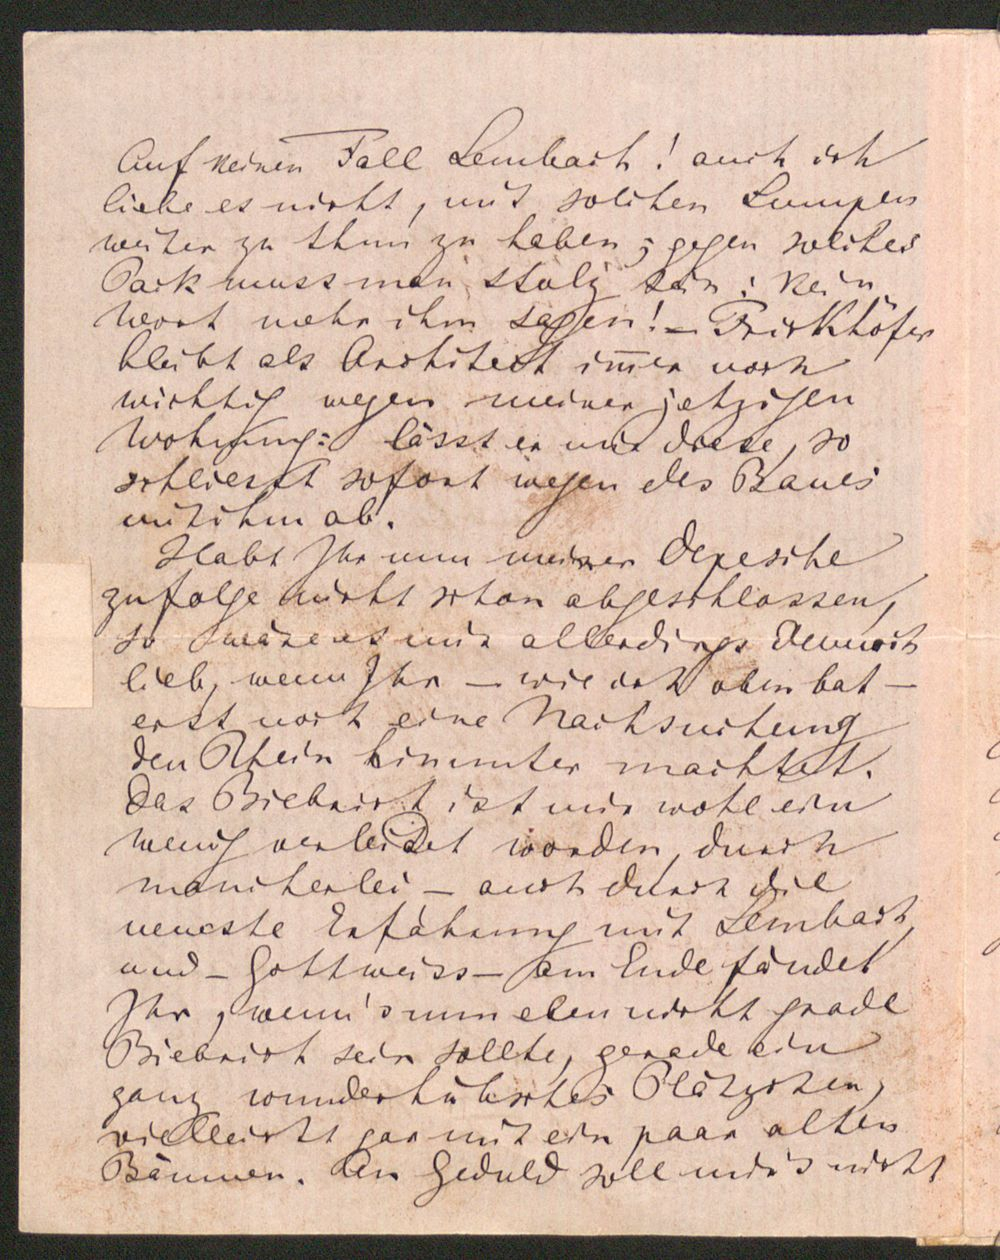 Auf keinen Fall Lembach! auch ich
liebe es nicht, mit solchen Lumpen
weiter zu thun zu haben; gegen solches
Pack muss man stolz sein: kein
Wort mehr ihm sagen! – Frickhöfer
bleibt als Architect im̅er noch
wichtig wegen meiner jetzigen
Wohnung: lässt er mir diese, so
schliesst sofort wegen des Baues
mit ihm ab.
Habt Ihr nun meiner Depesche
zufolge nicht schon abgeschlossen,
so wäre es mir allerdings dennoch
lieb, wenn Ihr – wie ich oben bat –
erst noch eine Nachsuchung
den Rhein hinunter machtet.
Das Biebrich ist mir wohl ein
wenig verleidet worden, durch
mancherlei – auch durch die
neueste Erfahrung mit Lembach,
und – Gott weiss – am Ende fändet
Ihr, wenn's nun eben nicht grade
Biebrich sein sollte, gerade ein
ganz wunderhübsches Plätzchen,
vielleicht gar mit ein paar alten
Bäumen. An Geduld soll mir's nicht